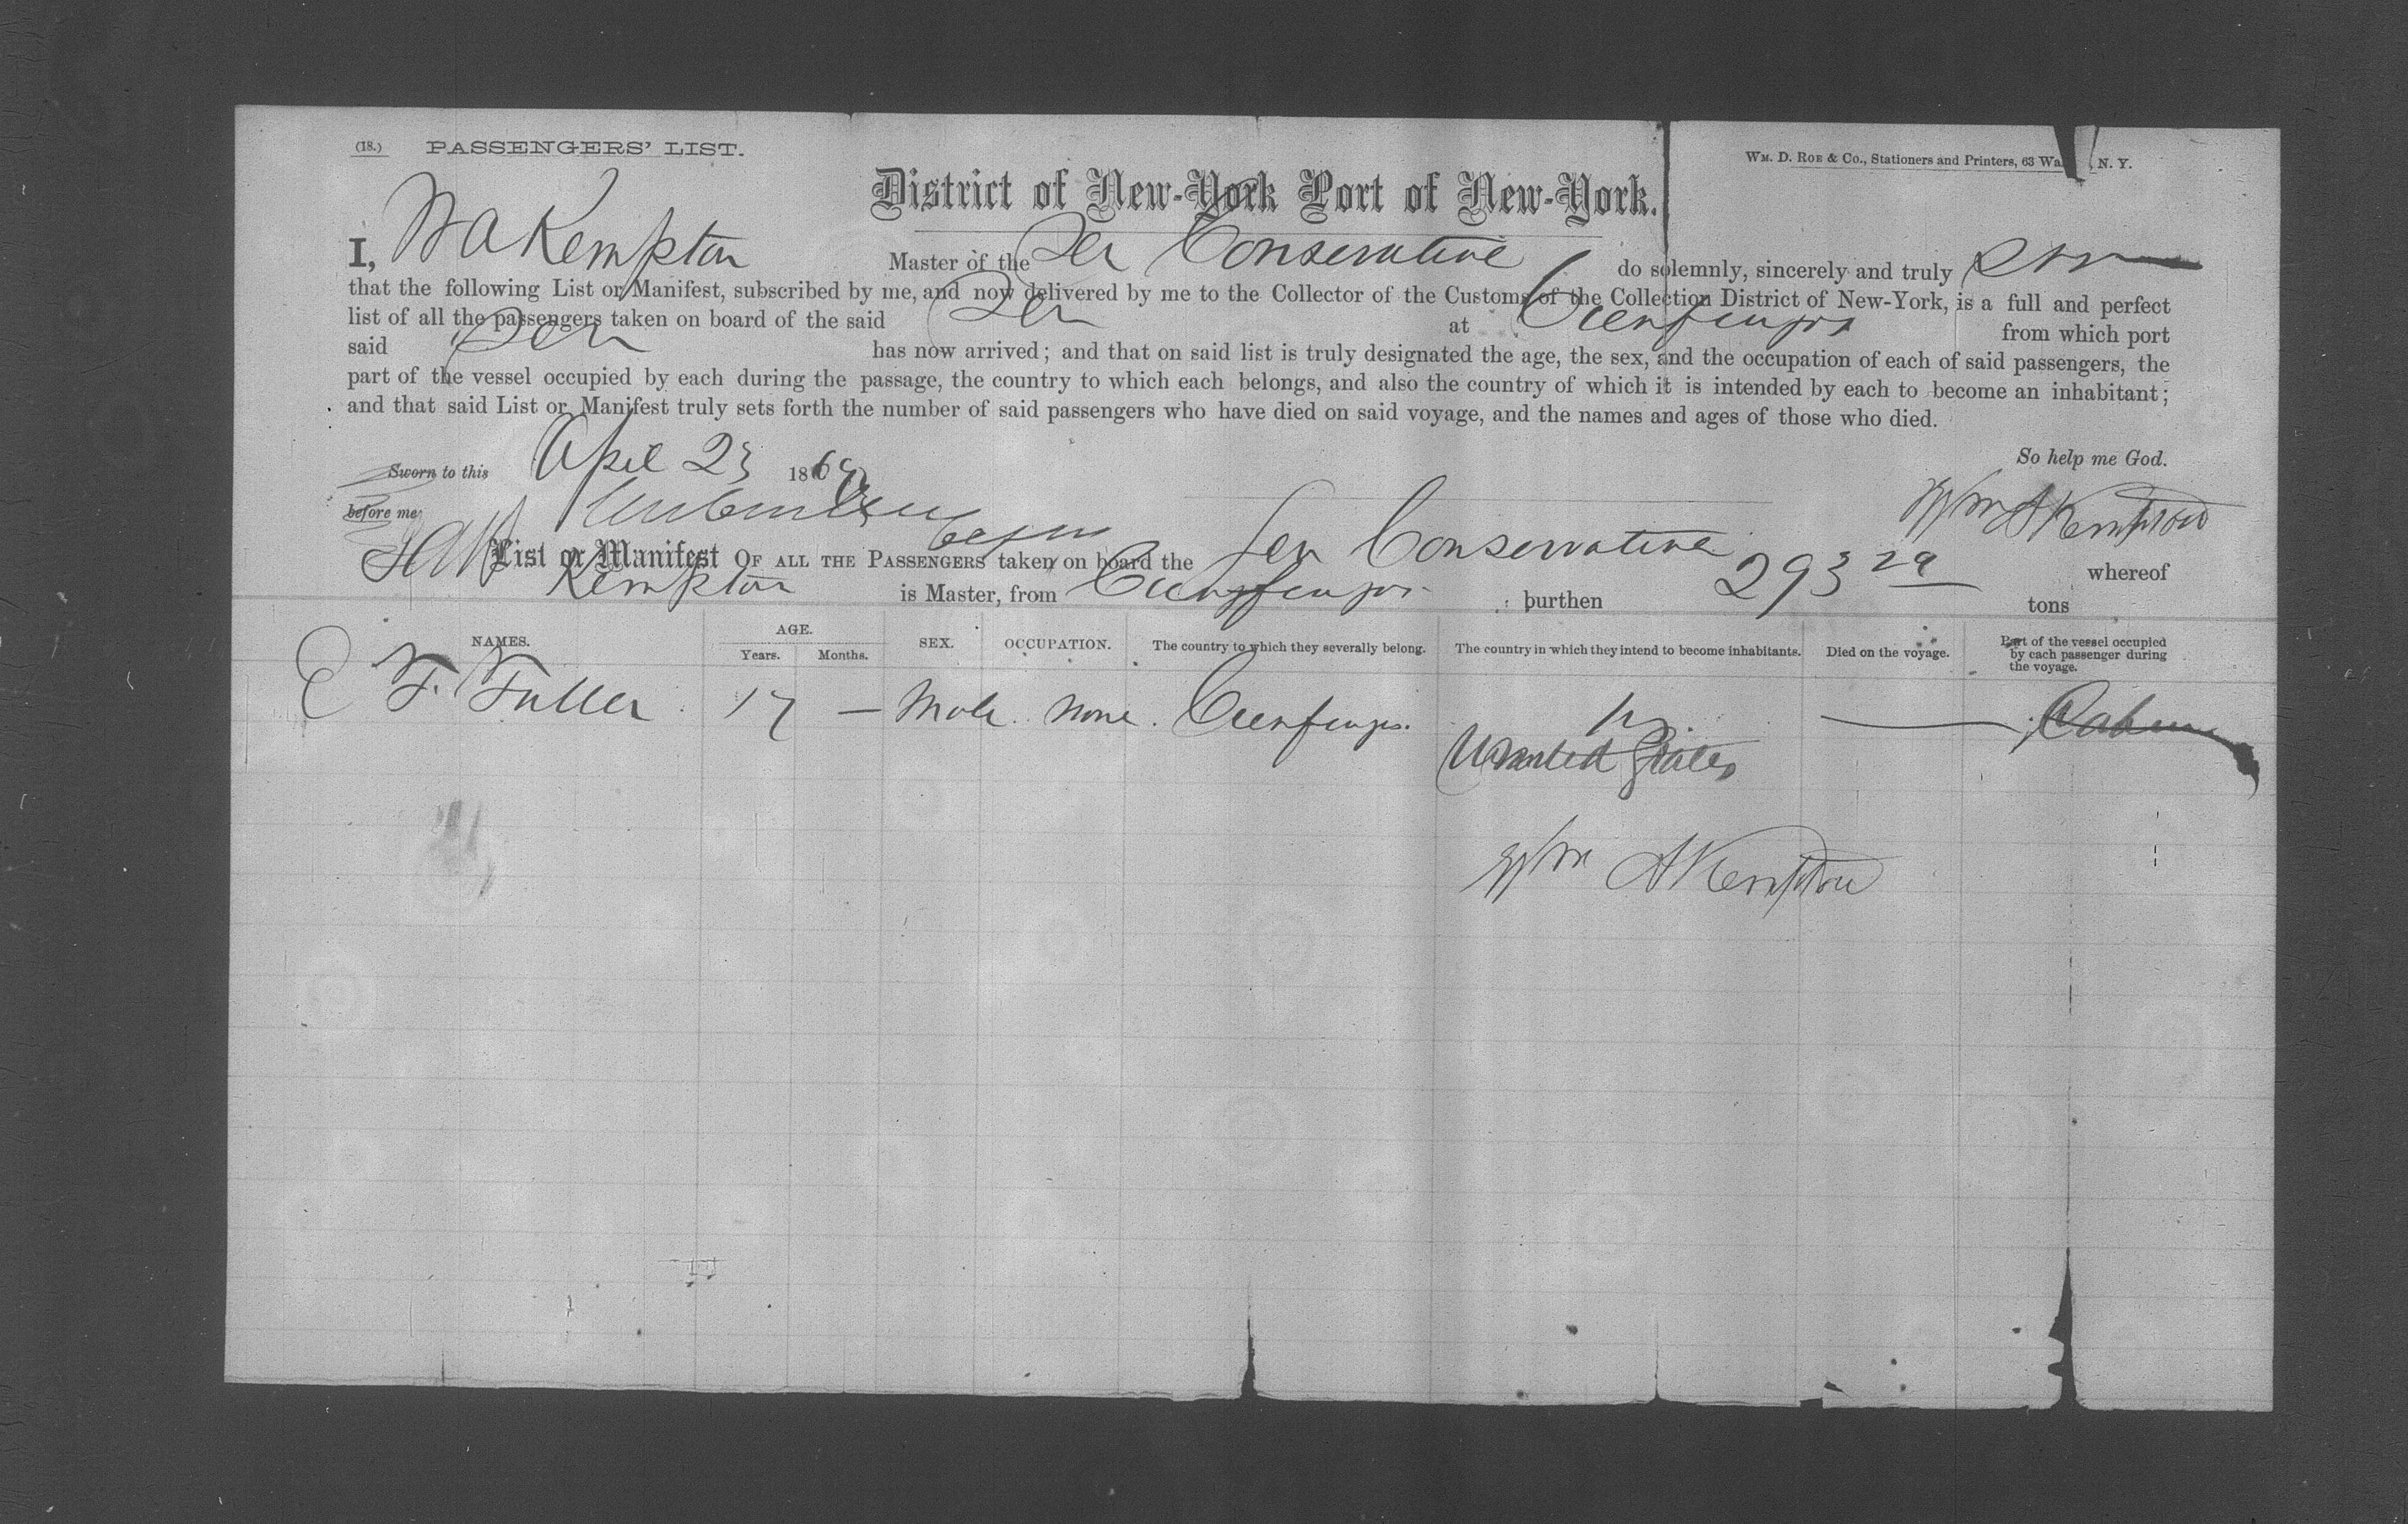 (18.) PASSENGERS' LIST.
WM. D. ROE & CO., Stationers and Printers, 63 Wa N. Y.
District of New-York Port of New-York.
I, W A Kempton Master of the Scr Conservative do solemnly, sincerely and truly
that the following List or Manifest, subscribed by me, and now delivered by me to the Collector of the Customs of the Collection District of New-York, is a full and perfect
list of all the passengers taken on board of the said Scr at Cienfuegos from which port
said Scr has now arrived; and that on said list is truly designated the age, the sex, and the occupation of each of said passengers, the
part of the vessel occupied by each during the passage, the country to which each belongs, and also the country of which it is intended by each to become an inhabitant;
and that said List or Manifest truly sets forth the number of said passengers who have died on said voyage, and the names and ages of those who died.
So help me God.
Sworn to this April 23 1869
before me
Wm A Kempton
List or Manifest OF ALL THE PASSENGERS taken on board the Scr Conservative whereof
Kempton is Master, from Cienfuegos burthen 293 29 tons
NAMES. AGE. Years. Months. SEX. OCCUPATION. The country to which they severally belong. The country in which they intend to become inhabitants. Died on the voyage. Part of the vessel occupied by each passenger during the voyage.
F. Fuller 17 — Male None Cienfuegos — Cabin
United States
Wm A Kempton